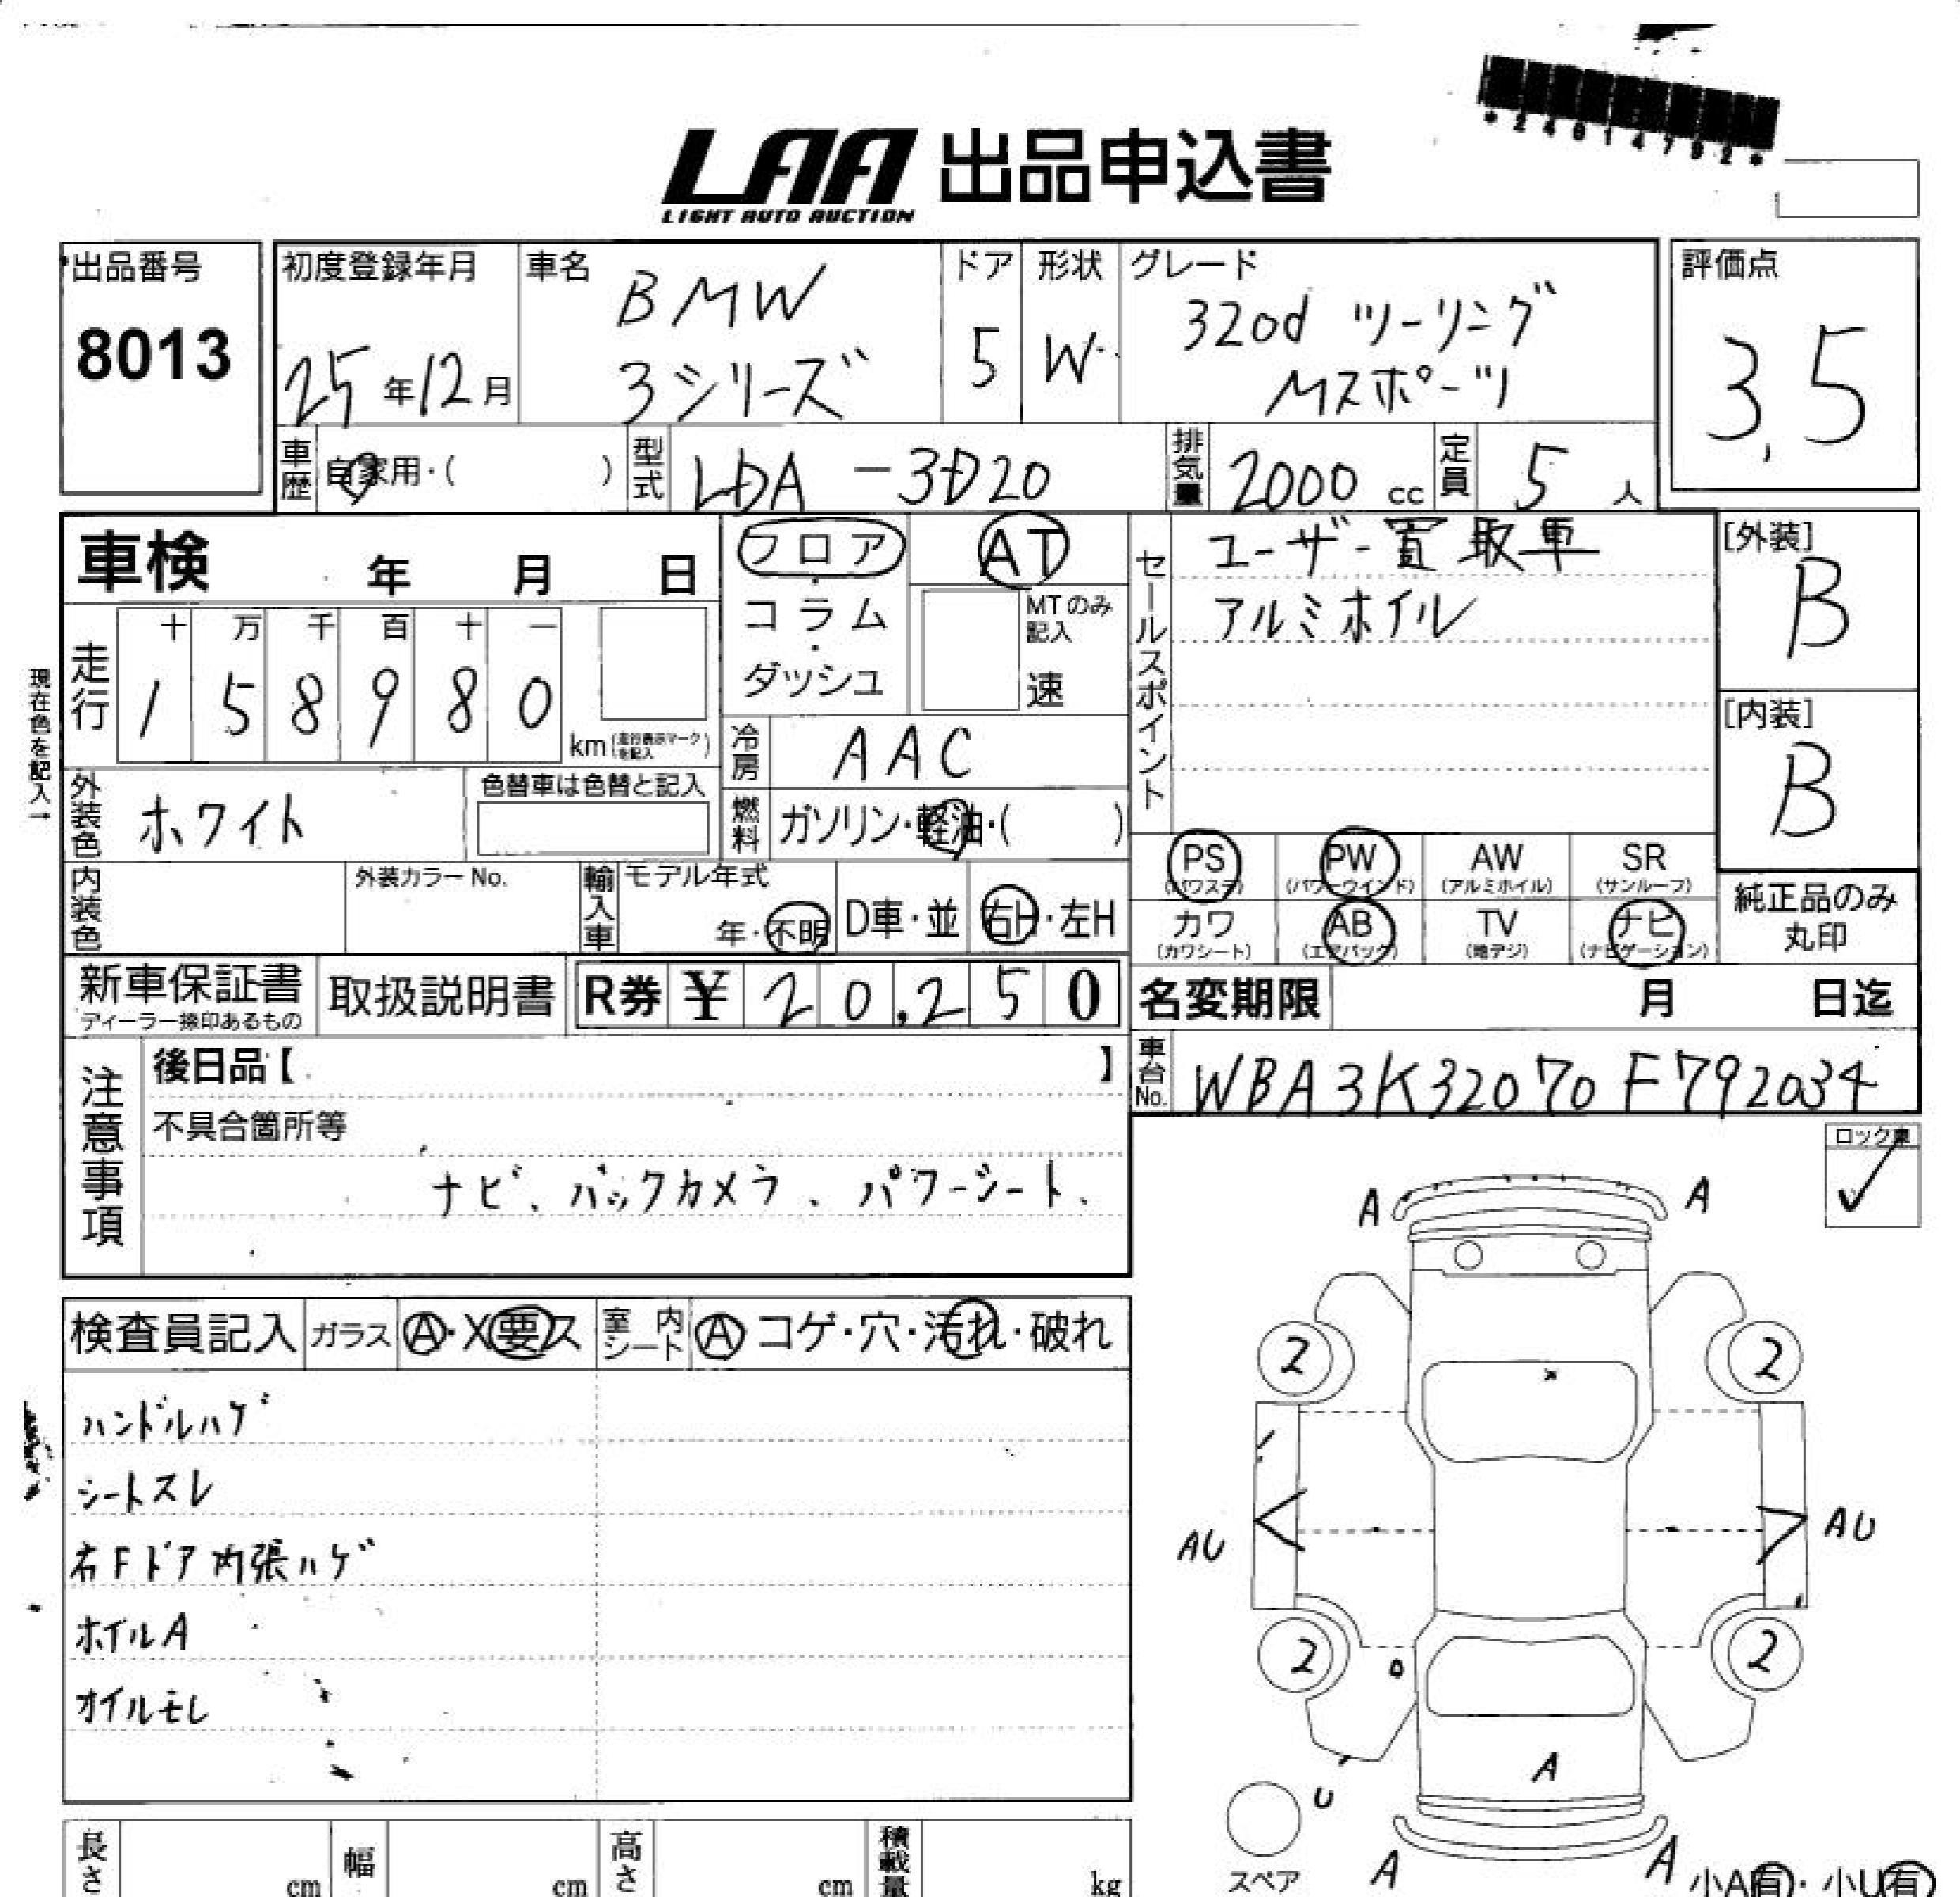 *24014792*
LAA 出品申込書
LIGHT AUTO AUCTION
出品番号
8013
初度登録年月
25年12月
車名
BMW
3シリーズ
ドア
5
形状
W
グレード
320d ツーリング
Mスポーツ
評価点
3.5
車歴 自家用・( )
型式 LDA-3D20
排気量 2000 cc
定員 5 人
車検 年 月 日
フロア・コラム・ダッシュ
AT
MTのみ記入
速
セールスポイント
ユーザー買取車
アルミホイル
[外装]
B
[内装]
B
現在色を記入→
走行
十 万 千 百 十 一
1 5 8 9 8 0
km(走行表示マークを記入)
冷房 AAC
外装色 ホワイト
色替車は色替と記入
燃料 ガソリン・軽油・( )
内装色
外装カラーNo.
輸入車 モデル年式
年・不明
D車・並
右H・左H
PS (パワステ)
PW (パワーウインド)
AW (アルミホイル)
SR (サンルーフ)
カワ (カワシート)
AB (エアバック)
TV (地デジ)
ナビ (ナビゲーション)
純正品のみ
丸印
新車保証書
ディーラー捺印あるもの
取扱説明書
R券 ¥ 20,250
名変期限 月 日迄
車台No. WBA3K32070F792034
注意事項
後日品【 】
不具合箇所等
ナビ、バックカメラ、パワーシート、
ロック車
✓
検査員記入
ガラス Ⓐ・X要ス
室内シート Ⓐ コゲ・穴・汚れ・破れ
ハンドルハゲ
シートスレ
右Fドア内張ハゲ
ホイルA
オイルモレ
A A
2 2
AU AU
2 2
A
U
スペア
A A
小A有・小U有
長さ cm
幅 cm
高さ cm
積載量 kg